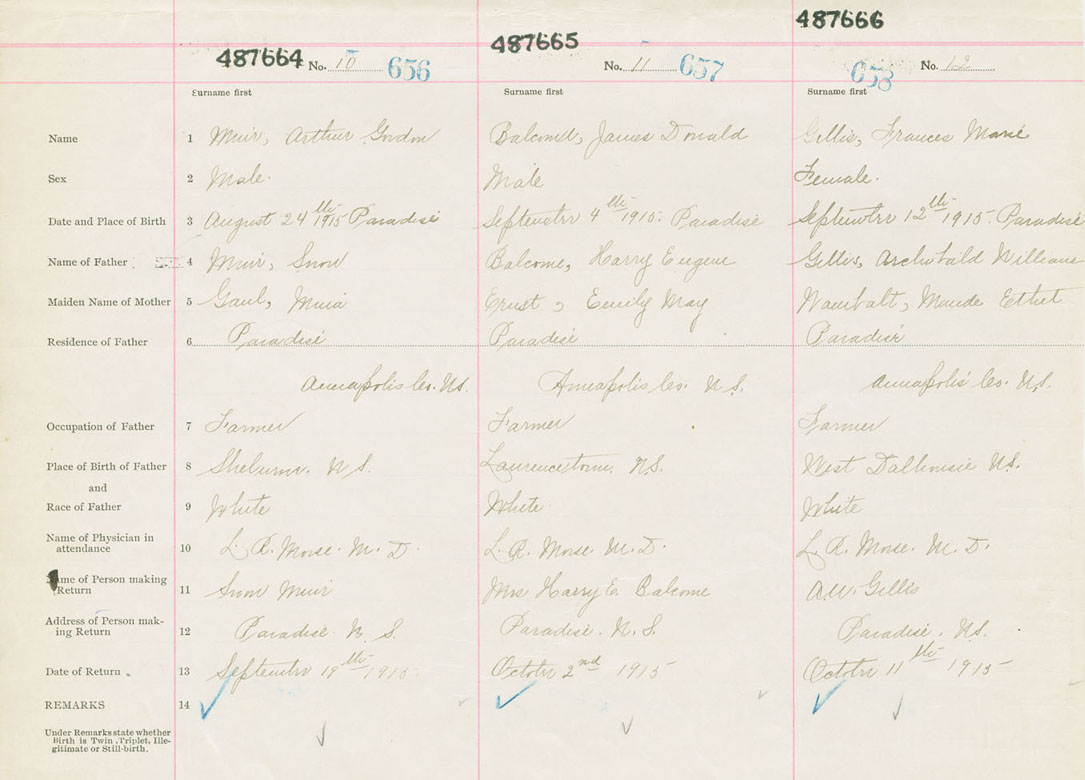 487664 487665 487666
No. 10 656 No. 11 657 658 No. 12
Surname first Surname first Surname first
Name 1 Muir, Arthur Gordon Balcomb, James Donald Gillis, Frances Marie
Sex 2 Male. Male Female.
Date and Place of Birth 3 August 24th 1915 Paradise September 4th 1915. Paradise September 12th 1915. Paradise
Name of Father 4 Muir, Snow Balcome, Harry Eugene Gillis, Archibald William
Maiden Name of Mother 5 Gaul, Ernst, Emily May Maude Ethel
Residence of Father 6 Paradise Paradise Paradise
Annapolis Co. N.S. Annapolis Co. N.S. Annapolis Co. N.S.
Occupation of Father 7 Farmer Farmer Farmer
Place of Birth of Father 8 Shelburne. N.S. Laurencetown. N.S. West Dalhousie N.S.
and
Race of Father 9 White White. White
Name of Physician in
attendance 10 L. R. Morse. M. D. L. R. Morse. M. D. L. R. Morse. M. D.
Name of Person making
Return 11 Snow Muir Mrs Harry E. Balcome A.W. Gillis
Address of Person mak-
ing Return 12 Paradise. N. S. Paradise. N. S. Paradise. N.S.
Date of Return 13 September 19th 1915. October 2nd 1915 October 11th 1915
REMARKS 14
Under Remarks state whether
Birth is Twin, Triplet, Ille-
gitimate or Still-birth.